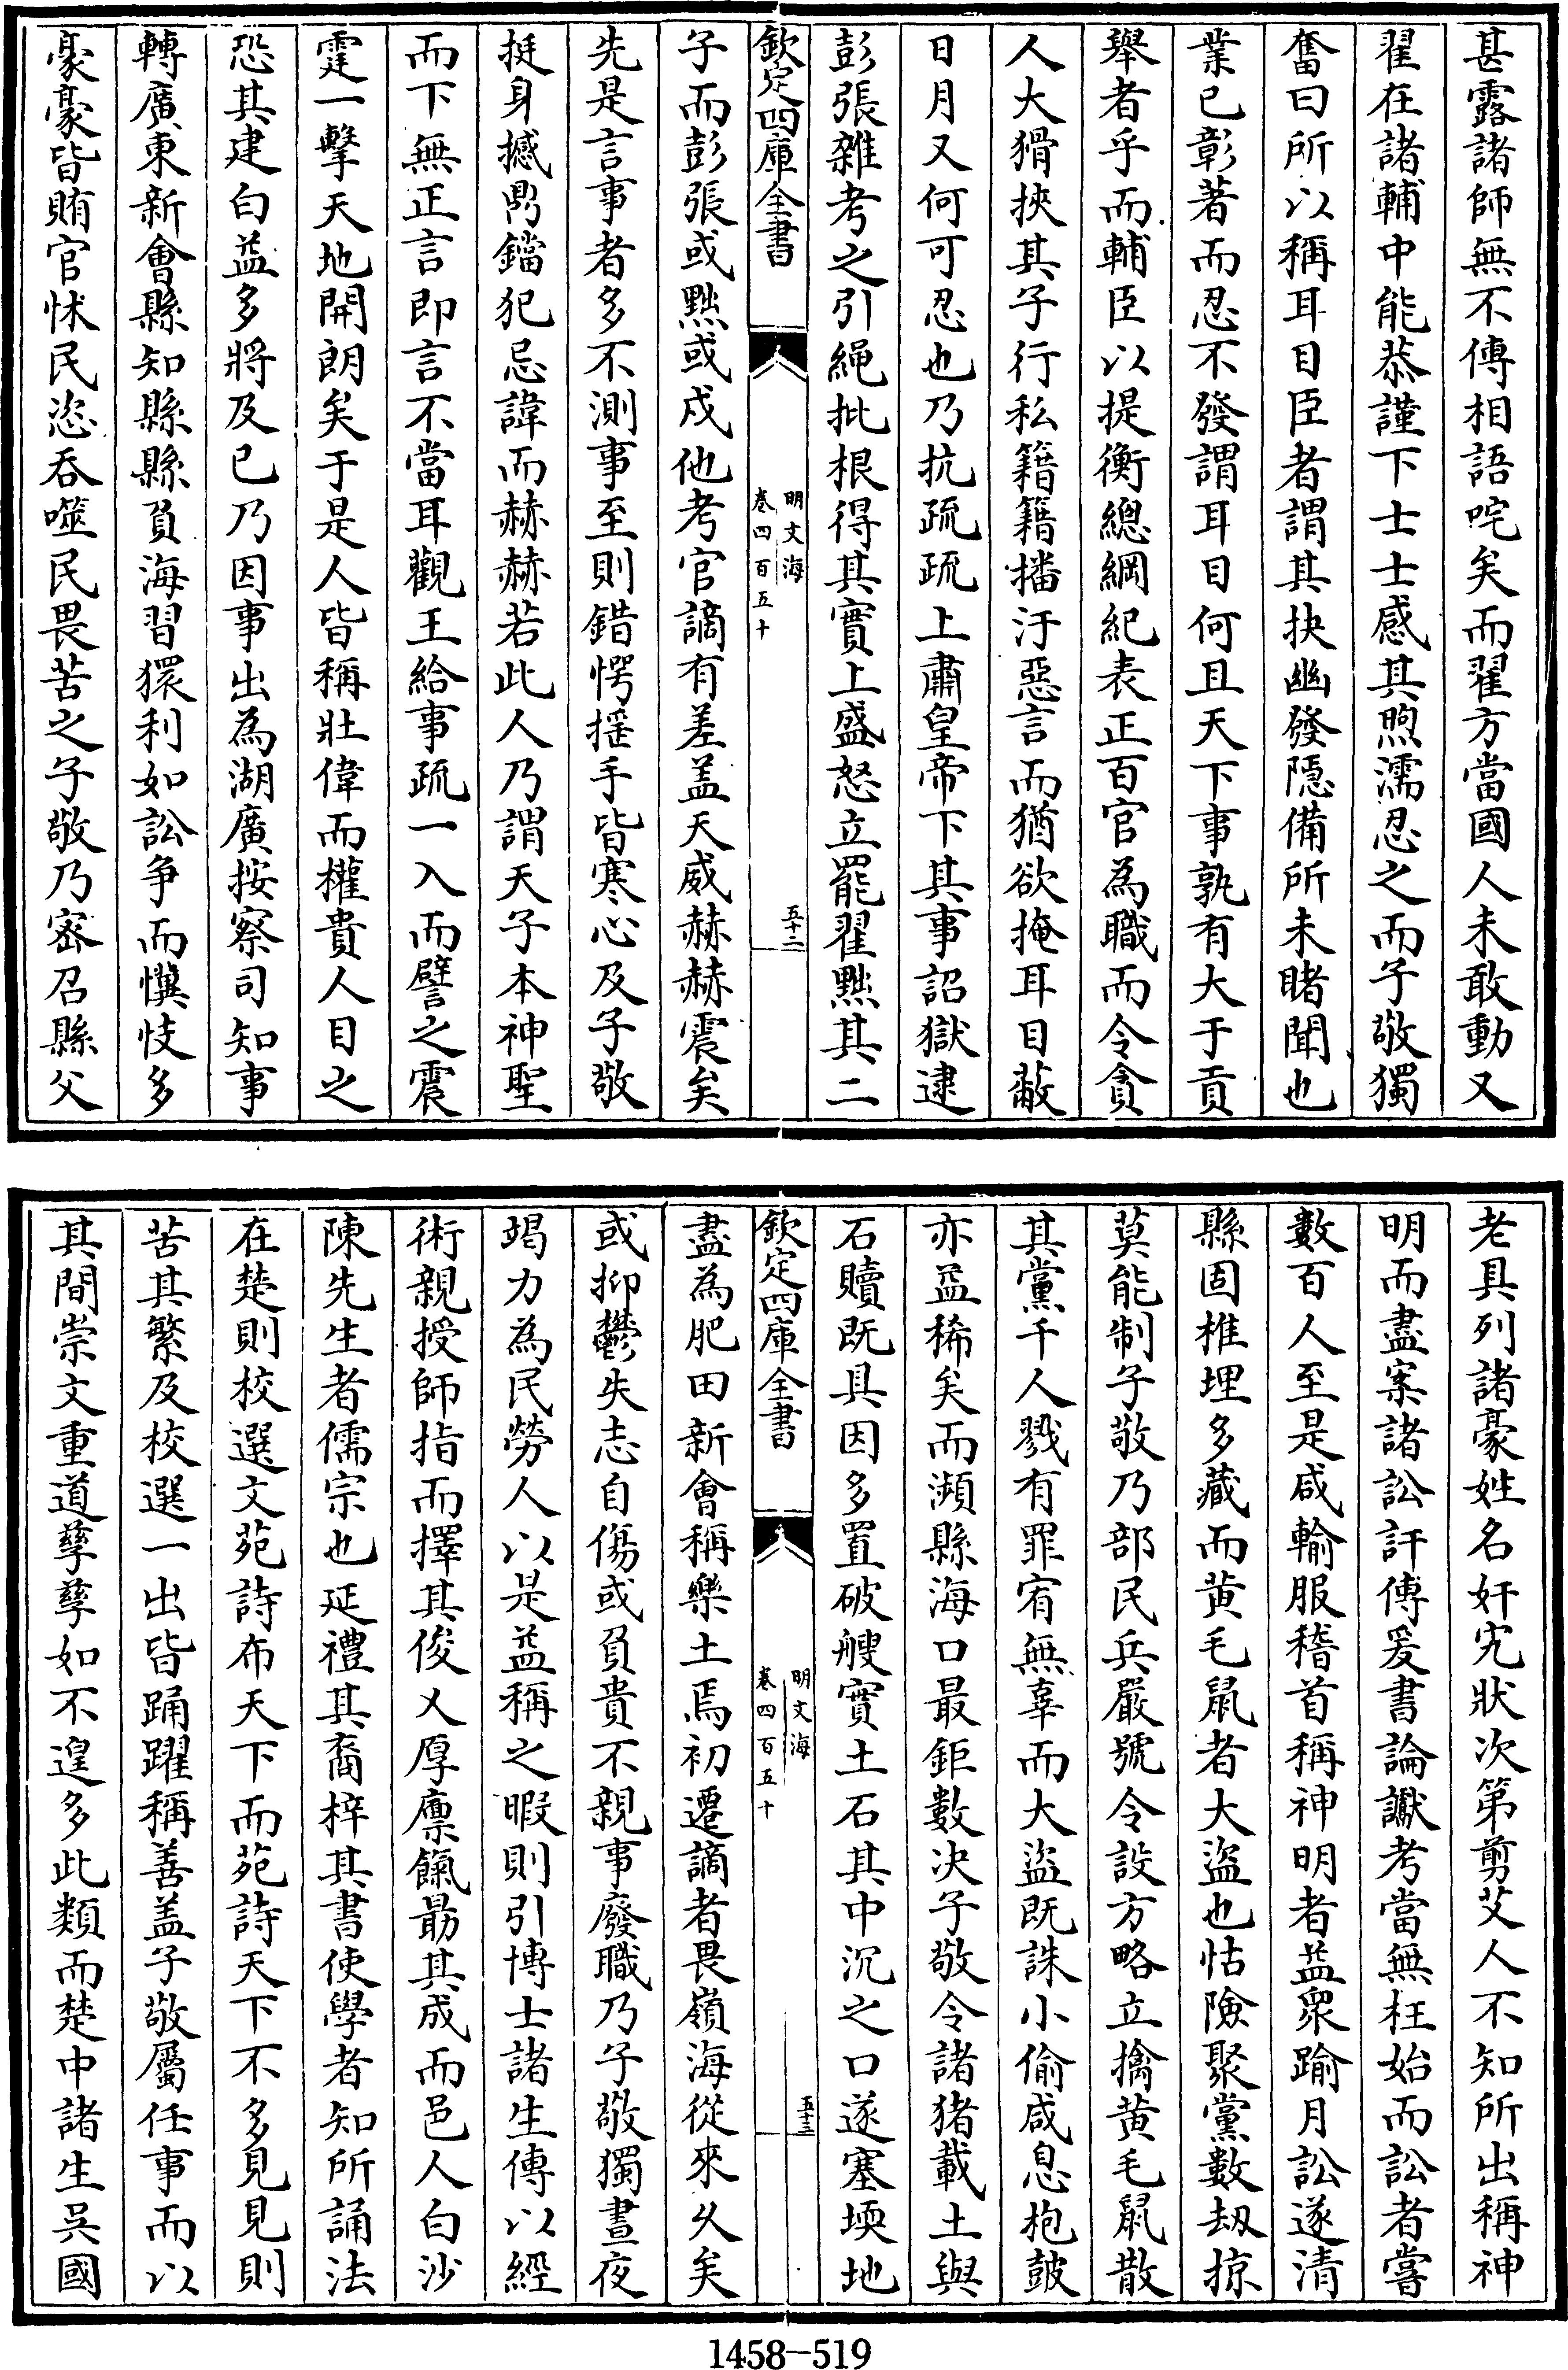 甚露諸師無不傅相語咤矣而翟方當國人未敢動又
翟在諸輔中能恭謹下士士感其煦濡忍之而子敬獨
奮曰所以稱耳目臣者謂其抉幽發隱備所未睹聞也
業已彰著而忍不發謂耳目何且天下事孰有大于貢
舉者乎而輔臣以提衡總綱紀表正百官為職而令貪
人大猾挾其子行私籍籍播汙惡言而猶欲掩耳目蔽
日月又何可忍也乃抗疏疏上肅皇帝下其事詔獄逮
彭張雜考之引繩批根得其實上盛怒立罷翟黜其二
欽定四庫全書
明文海
卷四百五十
五十二
子而彭張或黜或戍他考官謫有差盖天威赫赫震矣
先是言事者多不測事至則錯愕揺手皆寒心及子敬
挺身撼鼎鐺犯忌諱而赫赫若此人乃謂天子本神聖
而下無正言即言不當耳觀王給事疏一入而譬之震
霆一擊天地開朗矣于是人皆稱壯偉而權貴人目之
恐其建白益多將及已乃因事出為湖廣按察司知事
轉廣東新會縣知縣縣負海習獧利如訟争而懻忮多
豪豪皆賄官怵民恣吞噬民畏苦之子敬乃密召縣父
老具列諸豪姓名奸宄狀次第剪艾人不知所出稱神
明而盡案諸訟訐傅爰書論讞考當無枉始而訟者嘗
數百人至是咸輸服稽首稱神明者益衆踰月訟遂清
縣固椎埋多藏而黄毛鼠者大盜也怙險聚黨數刼掠
莫能制子敬乃部民兵嚴號令設方略立擒黄毛鼠散
其黨千人戮有罪宥無辜而大盜既誅小偷咸息枹鼓
亦益稀矣而瀕縣海口最鉅數决子敬令諸猪載土與
石贖既具因多置破艘實土石其中沉之口遂塞堧地
欽定四庫全書
明文海
卷四百五十
五十三
盡為肥田新會稱樂土焉初遷謫者畏嶺海從來久矣
或抑鬱失志自傷或負貴不親事廢職乃子敬獨晝夜
竭力為民勞人以是益稱之暇則引博士諸生傳以經
術親授師指而擇其俊乂厚廩餼勗其成而邑人白沙
陳先生者儒宗也延禮其裔梓其書使學者知所誦法
在楚則校選文苑詩布天下而苑詩天下不多見見則
苦其繁及校選一出皆踊躍稱善盖子敬屬任事而以
其間崇文重道孳孳如不遑多此類而楚中諸生吳國
1458-519